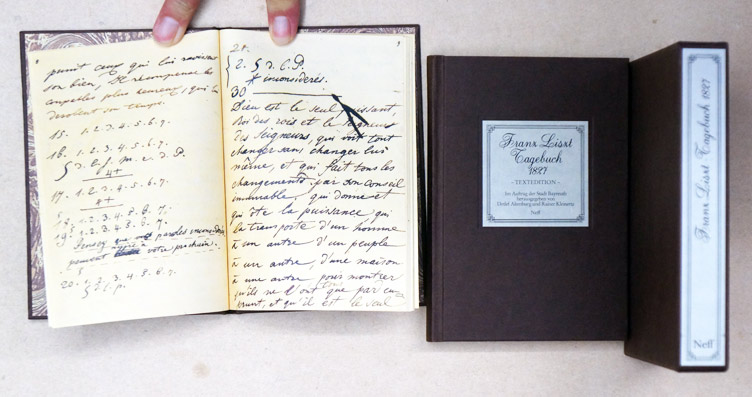 punit ceux qui lui ravissent
son bien, Il récompense les
coupables plus
dérobent son temps.
15. 1. 2. 3. 4. 5. 6. 7.
16. 1. 2. 3. 4. 5. 6. 7.
17. 1. 2. 3. 4. 5. 6. 7.
18. 1. 2. 3. 4. 5. 6. 7.
19. 1. 2. 3. 4. 5. 6. 7.
que paroles inconsidérées
peuvent votre prochain.
20. 1. 2. 3. 4. 5. 6. 7.
21.
2. § d. C. P.
* inconsiderés.
30
Dieu est le seul puissant,
Roi des rois et le Seigneur
des Seigneurs, qui tout
changer sans changer lui
même, et qui fait tous les
changements par son conseil
immuable, qui donne et
qui ôte la puissance qui
la transporte d'un homme
à un autre d'un peuple
à un autre, d'une maison
à une autre pour montrer
qu'ils ne l'ont que par em-
prunt, et qu'il est le seul
Franz Liszt
Tagebuch
1827
- TEXTEDITION -
Im Auftrag der Stadt Bayreuth
herausgegeben von
Detlef Altenburg und Rainer Kleinertz
Neff
Franz Liszt Tagebuch 1827
Neff